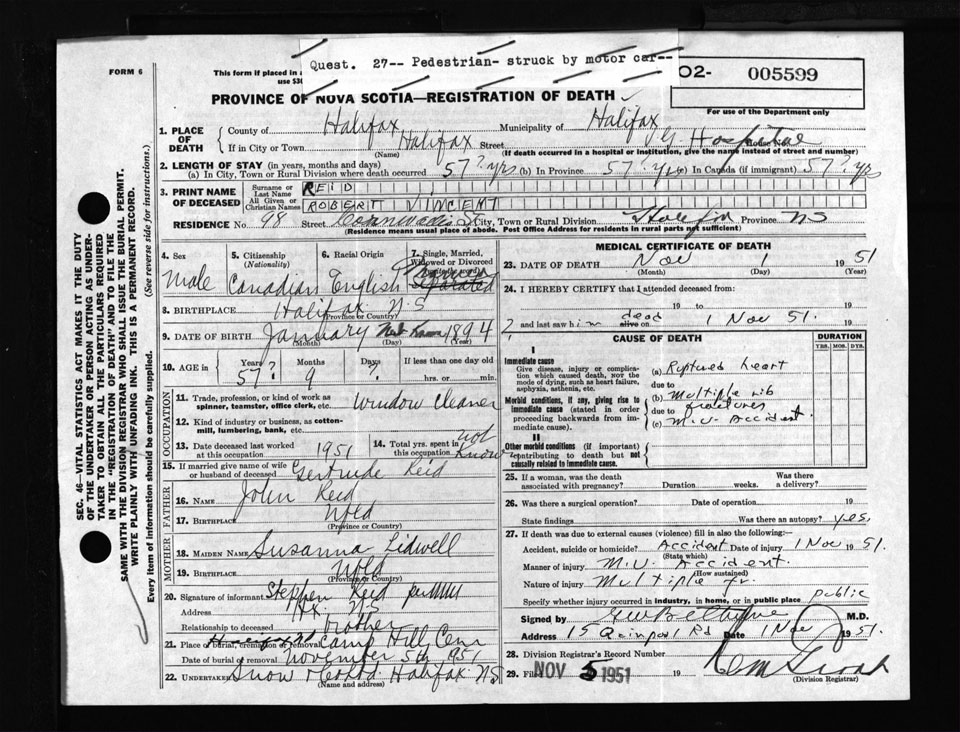 FORM 6
This form if placed in a
use $30
Quest. 27-- Pedestrian- struck by motor car--
O2- 005599
For use of the Department only
PROVINCE OF NOVA SCOTIA—REGISTRATION OF DEATH
1. PLACE OF DEATH
County of Halifax Municipality of Halifax
If in City or Town Halifax Street V G Hospital House No.
(Name) (If death occurred in a hospital or institution, give the name instead of street and number)
2. LENGTH OF STAY (in years, months and days)
(a) In City, Town or Rural Division where death occurred 57? yrs (b) In Province 57? yrs (c) In Canada (if immigrant) 57? yrs
3. PRINT NAME OF DECEASED
Surname or Last Name REID
All Given or Christian Names ROBERT VINCENT
RESIDENCE No. 98 Street Cornwallis St City, Town or Rural Division Halifax Province NS
(Residence means usual place of abode. Post Office Address for residents in rural parts not sufficient)
4. Sex Male
5. Citizenship (Nationality) Canadian
6. Racial Origin English
7. Single, Married, Widowed or Divorced (write the word) Separated
8. BIRTHPLACE Halifax N.S
(Province or Country)
9. DATE OF BIRTH January Not Known 1894
(Month) (Day) (Year)
10. AGE in Years 57? Months 9 Days ? If less than one day old
hrs. or min.
OCCUPATION
11. Trade, profession, or kind of work as spinner, teamster, office clerk, etc. Window Cleaner
12. Kind of industry or business, as cotton-mill, lumbering, bank, etc.
13. Date deceased last worked at this occupation 1951
14. Total yrs. spent in this occupation not know
15. If married give name of wife or husband of deceased Gertrude Reid
FATHER
16. NAME John Reid
17. BIRTHPLACE Nfld
(Province or Country)
MOTHER
18. MAIDEN NAME Susanna Lidwell
19. BIRTHPLACE Nfld
(Province or Country)
20. Signature of informant Stephen Reid per
Address Hx. N.S
Relationship to deceased Brother
21. Place of burial, cremation or removal Camp Hill Cem
Date of burial or removal November 5th 1951
22. UNDERTAKER Snow Halifax NS
(Name and address)
MEDICAL CERTIFICATE OF DEATH
23. DATE OF DEATH Nov 1 1951
(Month) (Day) (Year)
24. I HEREBY CERTIFY that I attended deceased from:
19 to 19
and last saw him dead alive on 1 Nov 51. 19
CAUSE OF DEATH
DURATION
YRS. MOS. DYS.
I
Immediate cause
Give disease, injury or complication which caused death, NOT the mode of dying, such as heart failure, asphyxia, asthenia, etc.
(a) Ruptured heart
due to
Morbid conditions, if any, giving rise to immediate cause (stated in order proceeding backwards from immediate cause).
(b) Multiple rib fractures
due to
(c) M.V. Accident.
II
Other morbid conditions (if important) contributing to death but not causally related to immediate cause.
25. If a woman, was the death associated with pregnancy? Duration weeks. Was there a delivery?
26. Was there a surgical operation? Date of operation 19
State findings Was there an autopsy? yes.
27. If death was due to external causes (violence) fill in also the following:
Accident, suicide or homicide? Accident Date of injury 1 Nov 1951.
(State which)
Manner of injury M.V. Accident.
(How sustained)
Nature of injury Multiple fr.
Specify whether injury occurred in industry, in home, or in public place public
Signed by M.D.
Address 15 Quinpool Rd Date 1 Nov 1951.
28. Division Registrar's Record Number
29. Filed NOV 5 1951 19
(Division Registrar)
SEC. 46—VITAL STATISTICS ACT MAKES IT THE DUTY
OF THE UNDERTAKER OR PERSON ACTING AS UNDER-
TAKER TO OBTAIN ALL THE PARTICULARS REQUIRED
IN THE "REGISTRATION OF DEATH" AND TO FILE THE
SAME WITH THE DIVISION REGISTRAR WHO SHALL ISSUE THE BURIAL PERMIT.
WRITE PLAINLY WITH UNFADING INK. THIS IS A PERMANENT RECORD.
Every item of information should be carefully supplied. (See reverse side for instructions.)